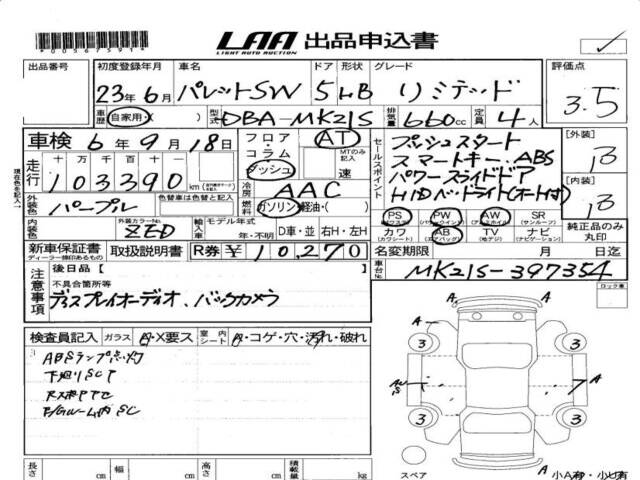 *0056759 1*
LAA 出品申込書
LIGHT AUTO AUCTION
出品番号 初度登録年月 車名 ドア 形状 グレード 評価点
23年 6月 パレットSW 5 HB リミテッド 3.5
車歴 自家用・( ) 型式 DBA-MK21S 排気量 660cc 定員 4人
車検 6年 9月 18日 フロア・コラム・ダッシュ AT MTのみ記入 速
セールスポイント プッシュスタート
スマートキー、ABS
パワースライドドア
HIDヘッドライト(オート付)
[外装] B
[内装] B
現在色を記入
走行 十万 万 千 百 十 一
103390 km
冷房 AAC
外装色 パープル 色替車は色替前の色 ( )
燃料 ガソリン・軽油・( )
内装色 外装カラーNo. ZED 輸入車 モデル年式 年・不明 D車・並 右H・左H
PS (パワステ) PW (パワーウインド) AW (アルミホイル) SR (サンルーフ)
カワ (カワシート) AB (エアバッグ) TV (地デジ) ナビ (ナビゲーション)
純正品のみ丸印
新車保証書 取扱説明書 R券 ¥10,270
ディーラー捺印のあるもの
名変期限 月 日迄
車台No. MK21S-397354
注意事項
後日品 [ ]
不具合箇所等
ディスプレイオーディオ、バックカメラ
ロック車
検査員記入 ガラス A・X要ス 室内シート A・コゲ・穴・汚れ・破れ
ABSランプ点灯
下廻りSCT
長さ cm 幅 cm 高さ cm 積載量 kg
A
3 3
A
3 3
A
スペア